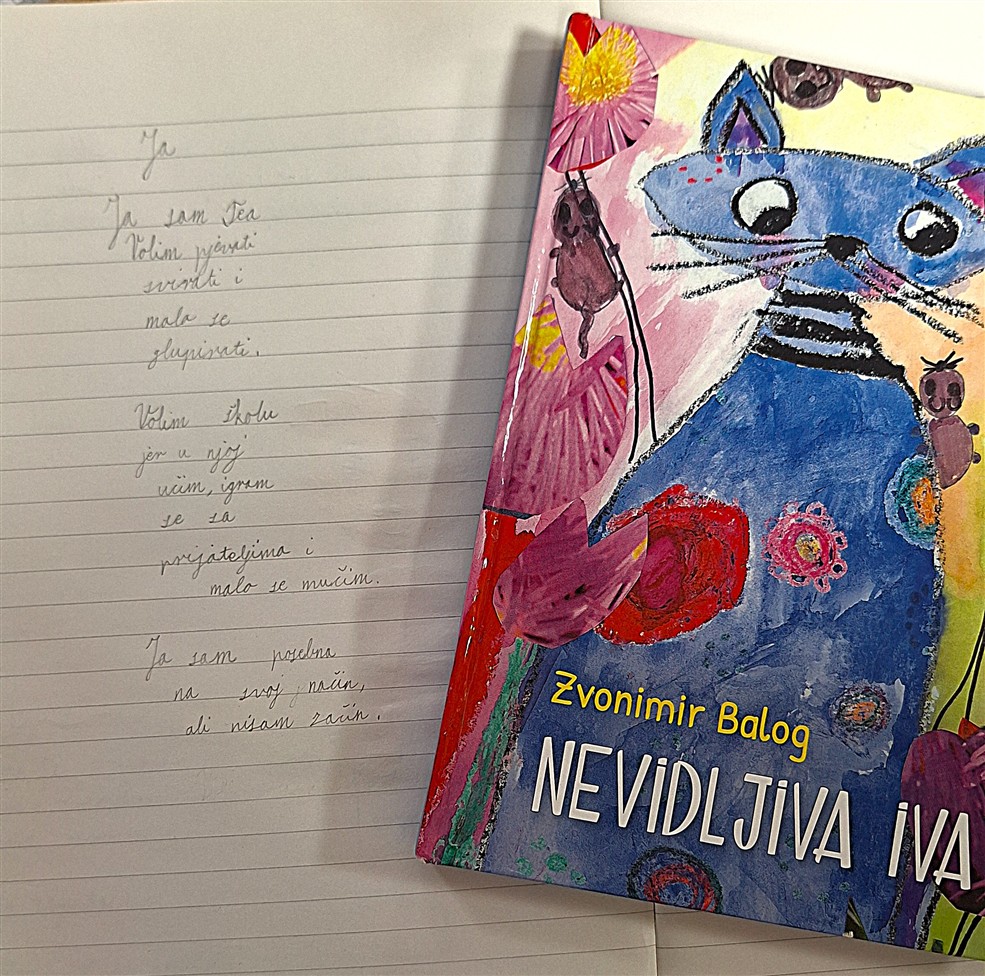 Ja
Ja sam Tea
Volim pjevati
svirati i
malo se
glupirati.
Volim školu
jer u njoj
učim, igram
se sa
prijateljima i
malo se mučim.
Ja sam posebna
na svoj način,
ali nisam začin.
Zvonimir Balog
NEViDLJiVA iVA